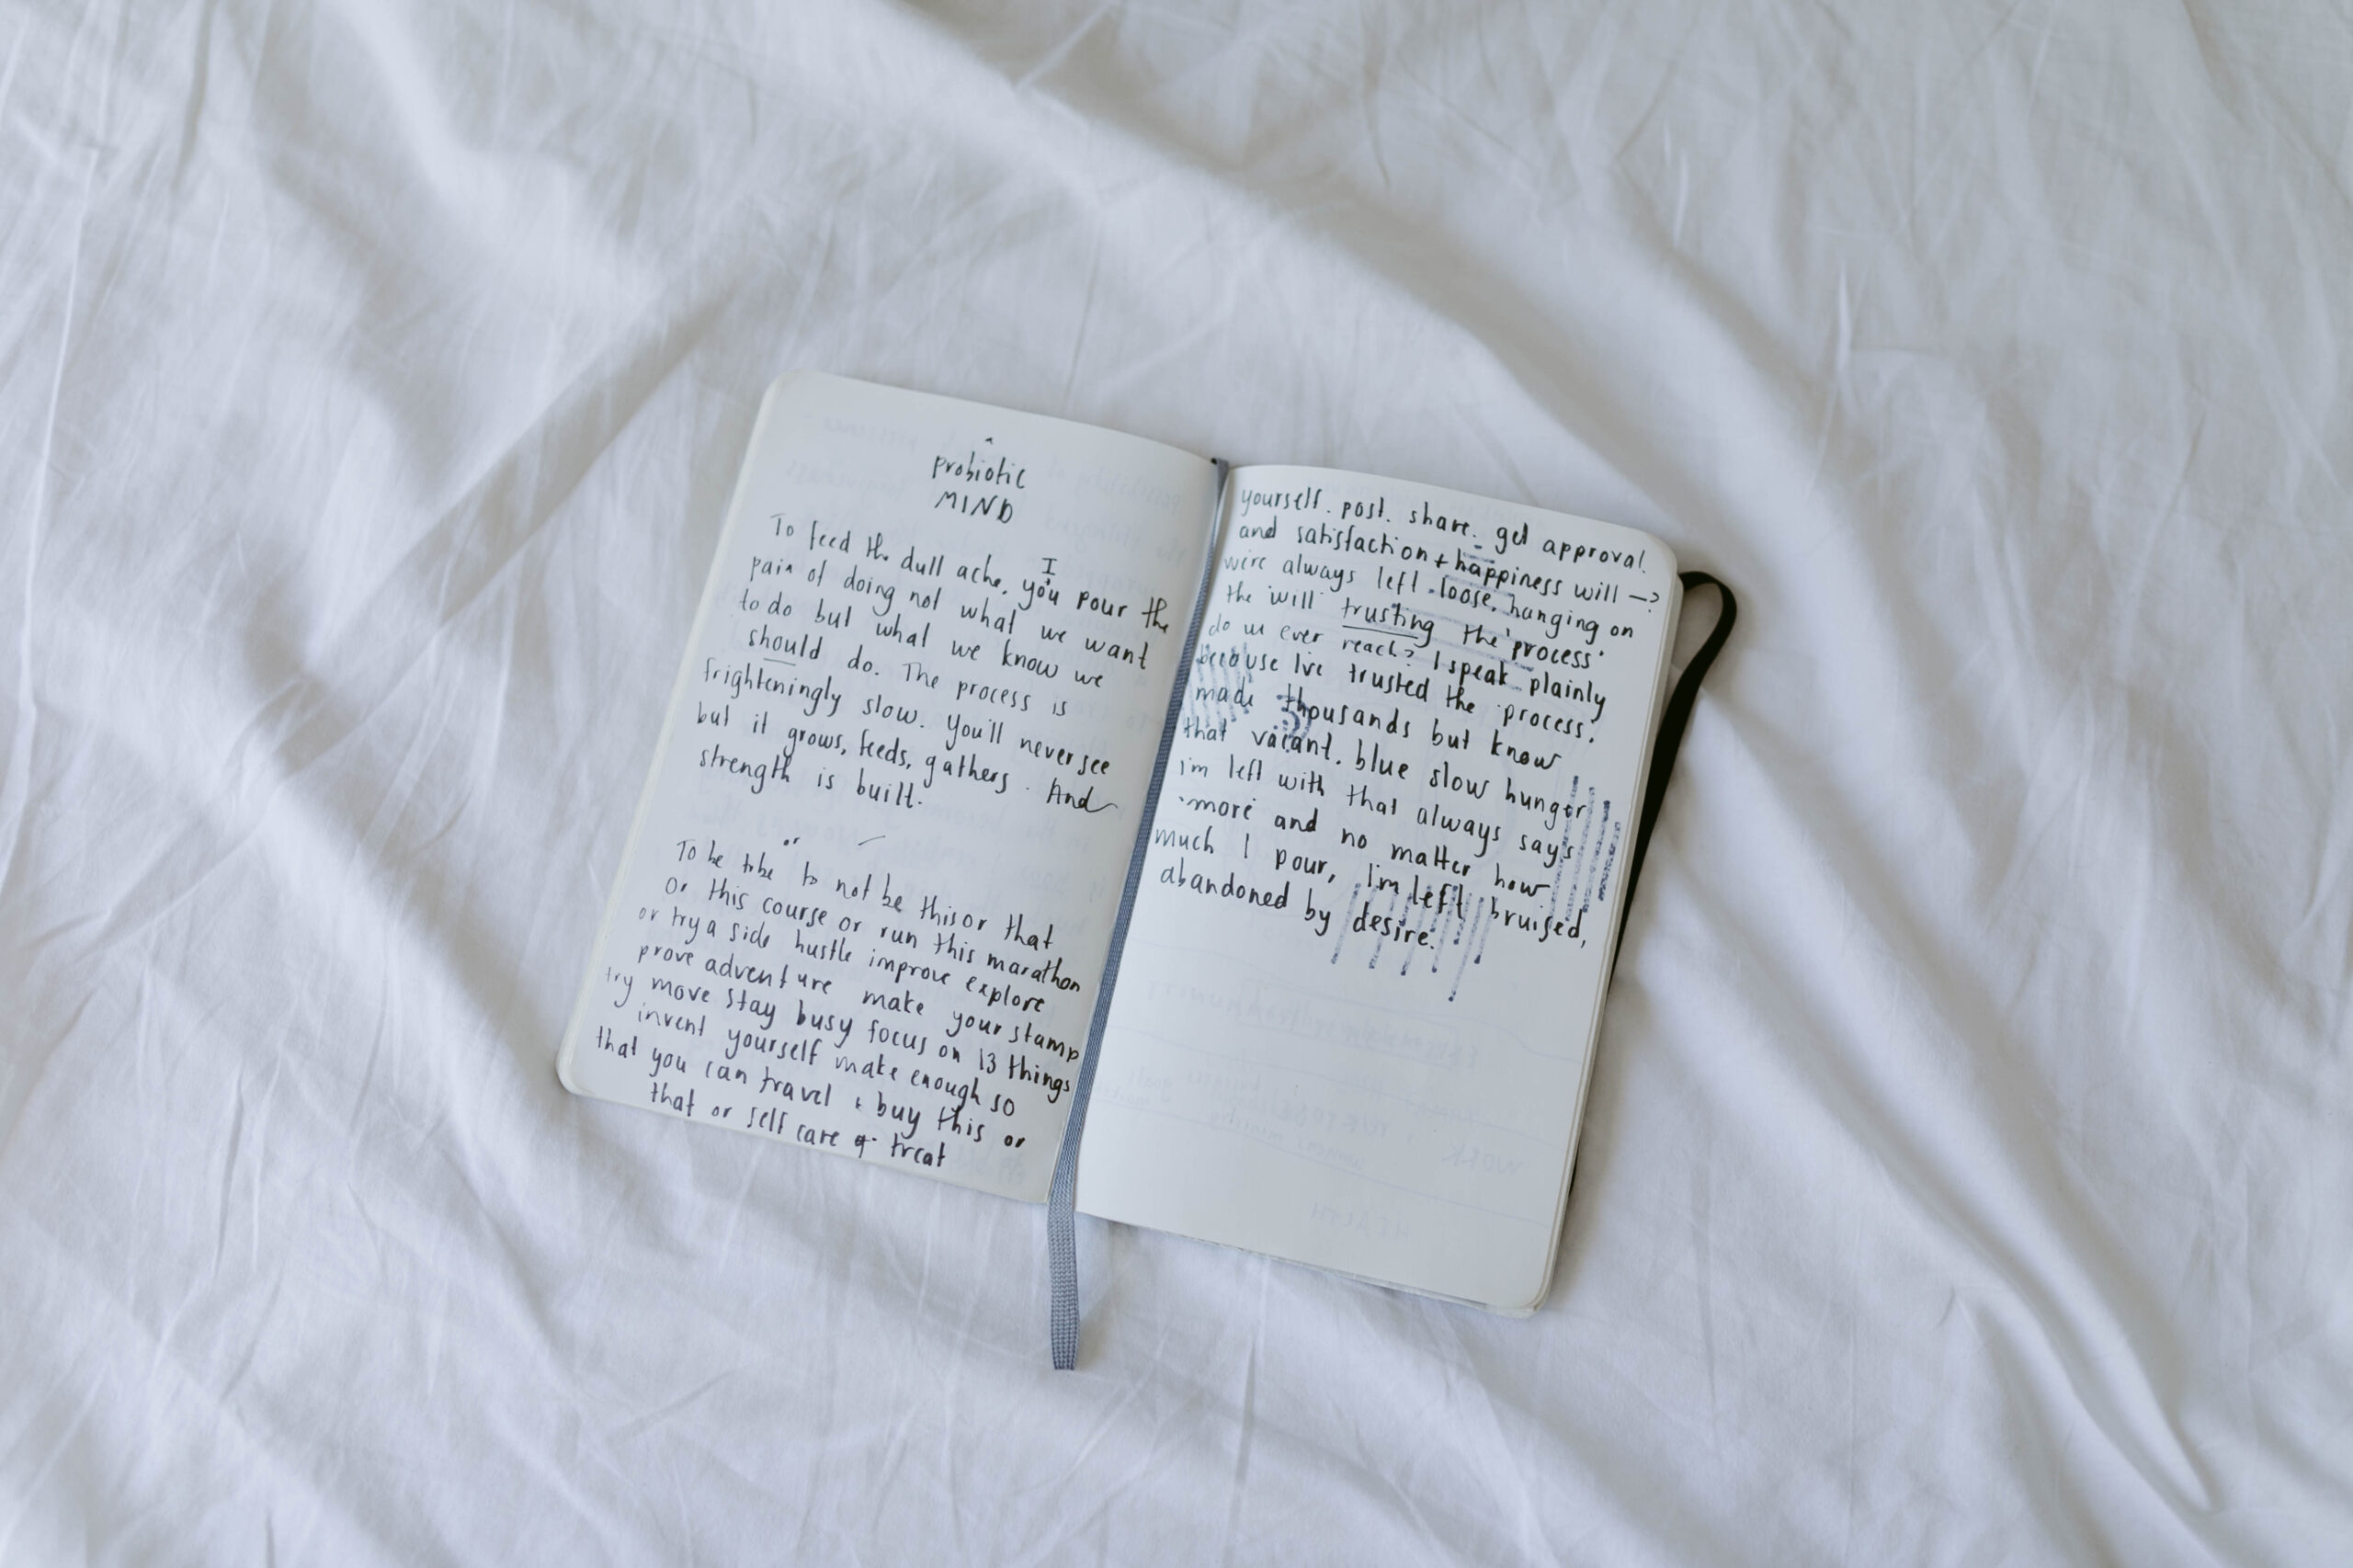 probiotic
MIND
To feed the dull ache, you I pour the
pain of doing not what we want
to do but what we know we
should do. The process is
frighteningly slow. You'll never see
but it grows, feeds, gathers. And
strength is built.
To be or to be to not be this or that
Or this course or run this marathon
or try a side hustle improve explore
prove adventure make your stamp
try move stay busy focus on 13 things
invent yourself make enough so
that you can travel + buy this or
that or self care + treat
yourself. post. share. get approval.
and satisfaction + happiness will →?
we're always left loose, hanging on
the 'will' trusting the 'process'
do we ever reach? I speak plainly
because I've trusted the 'process'.
made thousands but know
that vacant. blue slow hunger
i'm left with that always says
'more' and no matter how
much I pour, I'm left bruised,
abandoned by desire.